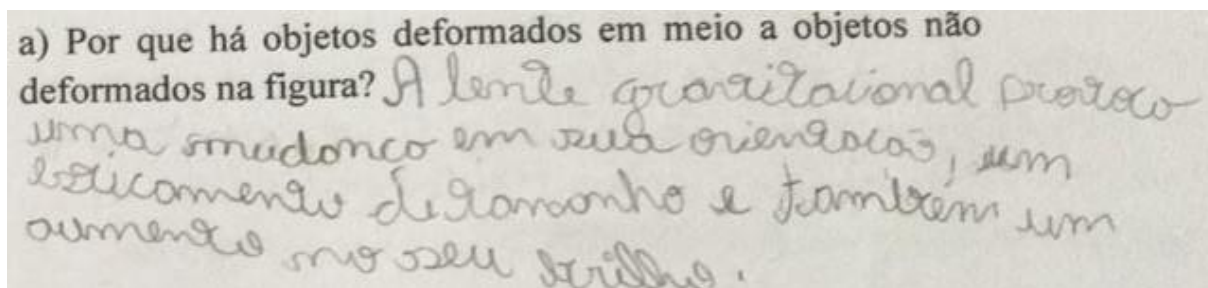 a) Por que há objetos deformados em meio a objetos não
deformados na figura? A lente gravitacional provoca
uma mudança em sua orientação, um
esticamento de tamanho e também um
aumento no seu brilho.